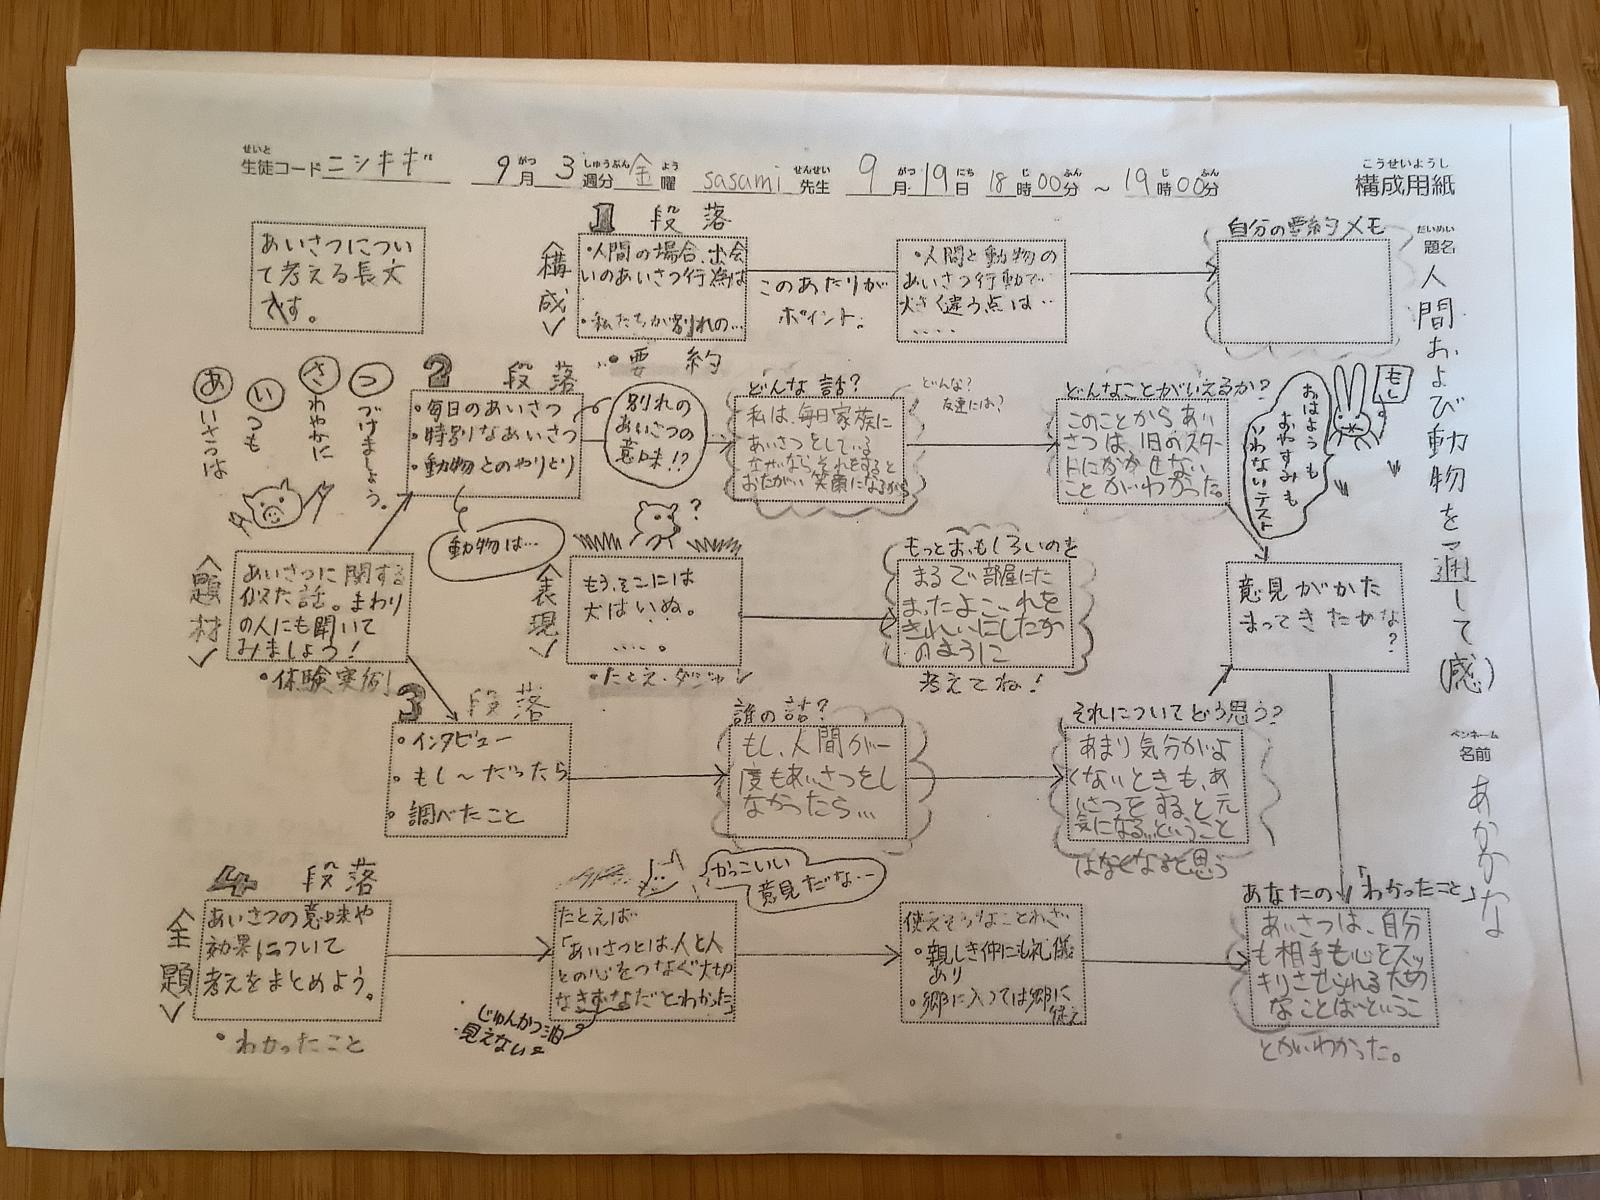 せいと
生徒コード ニシキギ 9月 3週分 金曜 sasami先生 9月19日 18時00分 ~ 19時00分
こうせいようし
構成用紙
だいめい
題名
人間および動物を通して(感)
ペンネーム
名前
あかかな
あいさつについ
て考える長文
です。
1 段落
<構成>
・人間の場合、出会
いのあいさつ行為は
・私たちが別れの…
このあたりが
ポイント。
・人間と動物の
あいさつ行動で
大きく違う点は‥
‥‥
自分の要約メモ
・要約
あいさつは
いつも
さわやかに
つづけましょう。
2 段落
・毎日のあいさつ
・特別なあいさつ
・動物とのやりとり
別れの
あいさつの
意味!?
動物は…
どんな話?
私は、毎日家族に
あいさつをしている
なぜなら、それをすると
おたがい笑顔になるから
どんな?
友達には?
どんなことがいえるか?
このことからあい
さつは、1日のスター
トにかかせない
ことがいわかった。
もし
おはようも
おやすみも
いわないテスト
<題材>
あいさつに関する
似た話。まわり
の人にも聞いて
みましょう!
・体験実例
<表現>
?
もう、そこには
犬はいぬ。
‥‥。
・たとえ・ダジャレ
もっとおもしろいのを
まるで部屋にた
まったよごれを
きれいにしたか
のように
考えてね!
意見がかた
まってきたかな?
3 段落
・インタビュー
・もし~だったら
・調べたこと
誰の話?
もし、人間が一
度もあいさつをし
なかったら…
それについてどう思う?
あまり気分がよ
くないときも、あ
いさつをすると元
気になる…ということ
はなくなると思う
4 段落
<主題>
あいさつの意味や
効果について
考えをまとめよう。
・わかったこと
かっこいい
意見だな…
たとえば
「あいさつとは、人と人
との心をつなぐ大切
なきずなだとわかった」
じゅんかつ油
見えない
使えそうなことわざ
・親しき仲にも礼儀
あり
・郷に入っては郷に
従え
あなたの「わかったこと」
あいさつは、自分
も相手も心をスッ
キリさせられる大切
なことば~というこ
とがいわかった。